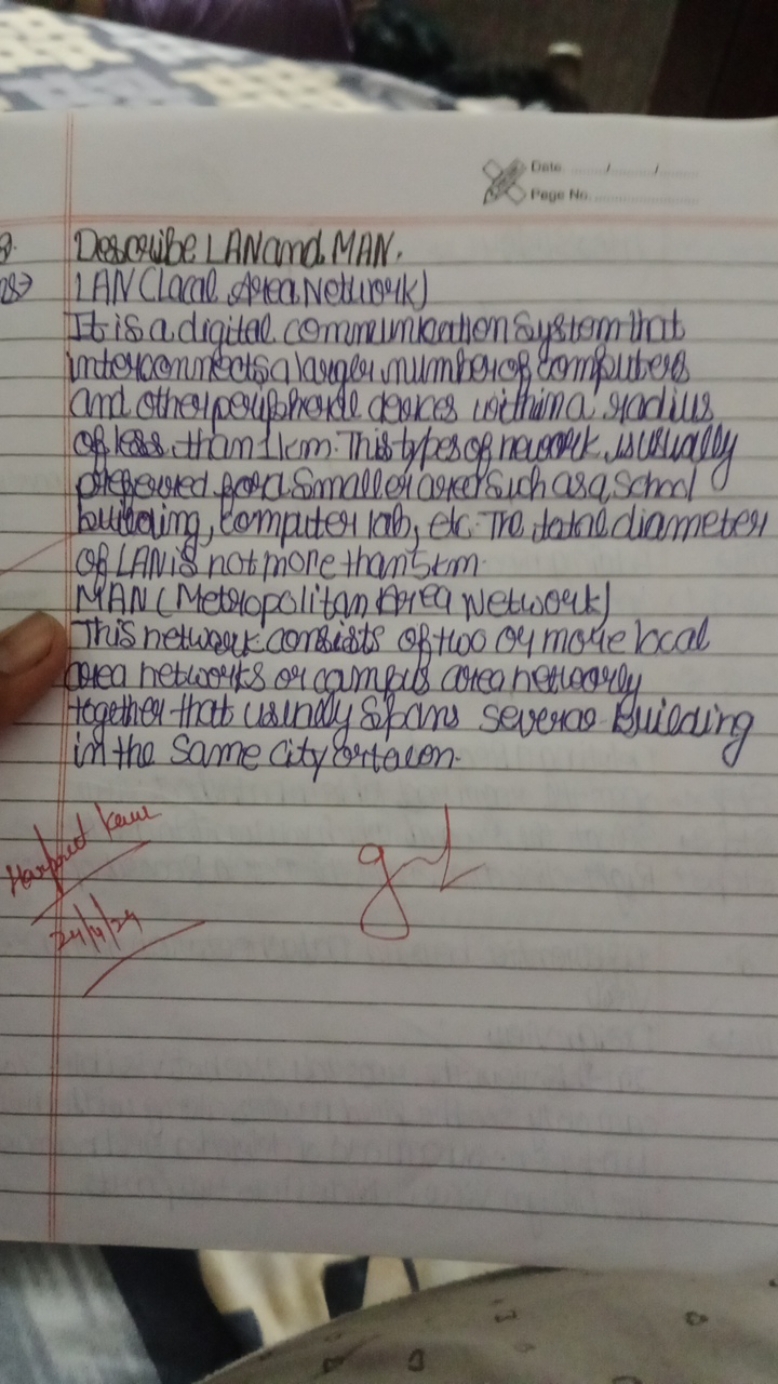 Date ......../........./........
Page No.
Describe LAN and MAN.
LAN (Local Area Network)
It is a digital communication system that
interconnects a larger number of computers
and other peripherale devices within a radius
of less than 1 km. This types of nework is usually
preferred for a smaller area such as a school
building, computer lab, etc. The total diameter
of LAN is not more than 5 km.
MAN (Metropolitan Area Network)
This network consists of two or more local
area networks or campus area networly
together that usually spans several building
in the same city or town.
Harpreet Kaur
24/4/24